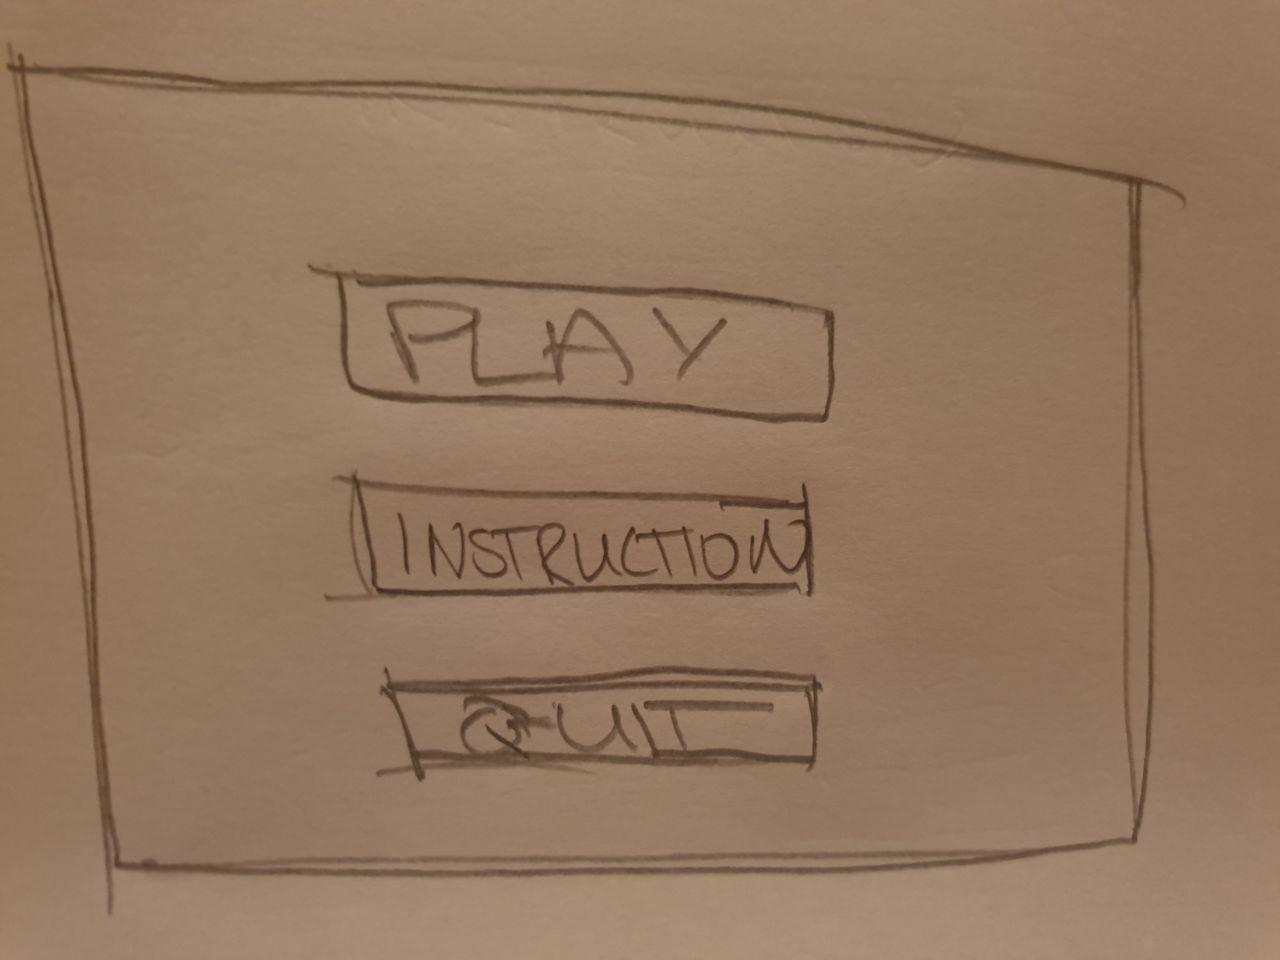 PLAY
INSTRUCTION
QUIT